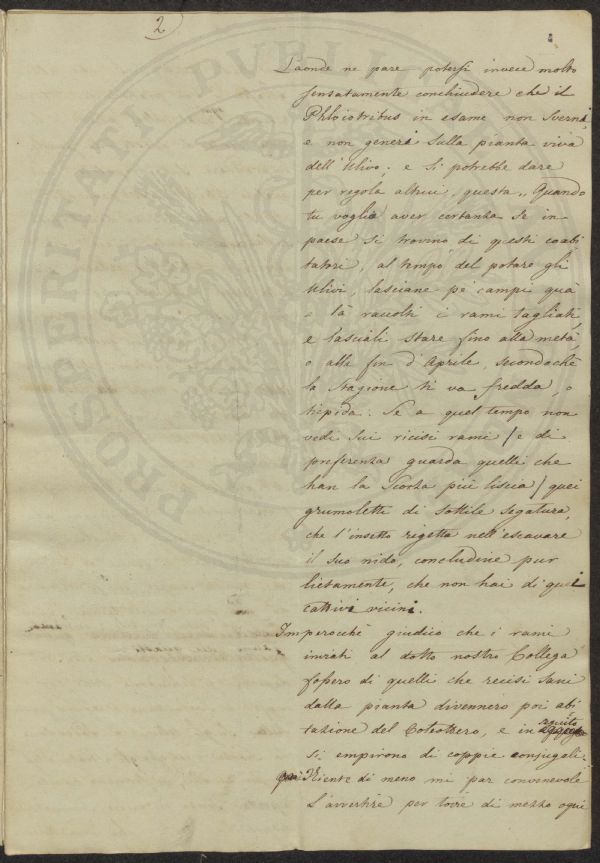 2
Laonde ne pare potersi invece molto
sensatamente conchiudere che il
Phloiotribus in esame non sverni,
e non generi sulla pianta viva
dell'Ulivo; e si potrebbe dare
per regola altrui questa „ Quando
tu voglia aver certanza se in
paese si trovino di questi coabi
tatori, al tempo del potare gli
Ulivi, lasciane pe' campi quà
e là raccolti i rami tagliati,
e lasciali stare fino alla metà,
o alla fin d'Aprile, secondochè
la stagione ti va fredda, o
tiepida: Se a quel tempo non
vedi sui ricisi rami / e di
preferenza guarda quelli che
han la scorza più liscia / quei
grumoletti di sottile segatura,
che l'insetto rigetta nell'escavare
il suo nido, concludine pur
lietamente, che non hai di quei
cattivi vicini.
Imperocchè giudico che i rami
inviati al dotto nostro Collega
fossero di quelli che recisi sani
dalla pianta divennero poi abi
tazione del Coleottero, e in seguito
si empirono di coppie conjugali.
Niente di meno mi par convenevole
l'avvertire per torre di mezzo ogni
PROSPERITATI PUBL